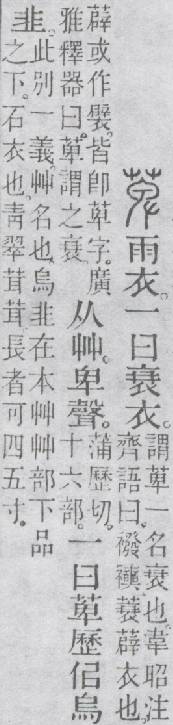 萆雨衣。一曰衰衣。謂萆一名衰也。韋昭注齊語曰。襏襫、蓑薜衣也。
薜或作襞。皆卽萆字。廣雅釋器曰。萆謂之衰。从艸。卑聲。蒲歷切。十六部。一曰萆歷佀烏
韭。此別一義。艸名也。烏韭在本艸艸部下品之下。石衣也。靑翠茸茸。長者可四五寸。